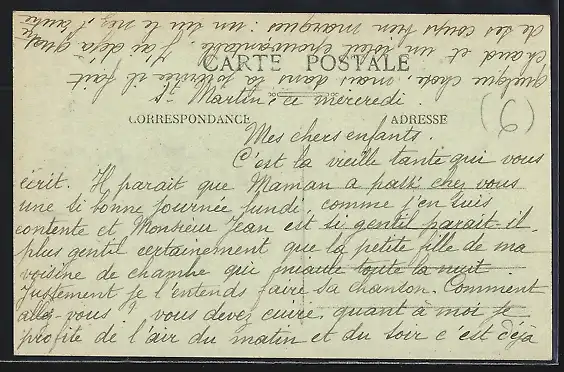 CARTE POSTALE
CORRESPONDANCE
ADRESSE
(6)
St Martin, ce mercredi.
Mes chers enfants.
C'est la vieille tante qui vous
écrit. Il parait que Maman a passé chez vous
une si bonne journée lundi, comme j'en suis
contente et Monsieur Jean est si gentil parait-il,
plus gentil certainement que la petite fille de ma
voisine de chambre qui miaule toute la nuit.
Justement je l'entends faire sa chanson. Comment
allez-vous? vous devez cuire, quant à moi je
profite de l'air du matin et du soir c'est déjà
quelque chose, mais dans la journée il fait
chaud et un soleil épouvantable. J'ai déjà
de ses coups bien marqués: un sur le nez,